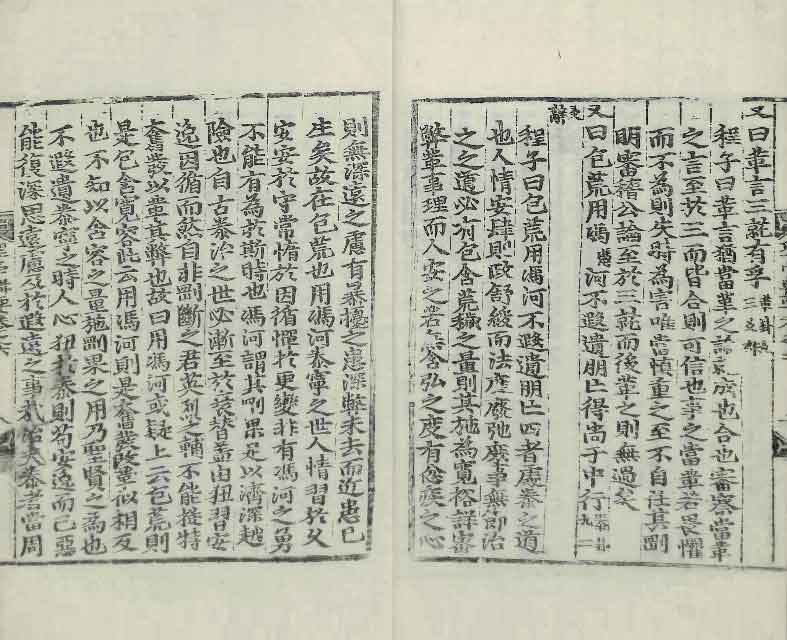 又曰革言三就有孚革卦九三爻辭
程子曰革言猶當革之論就成也合也審察當革
之言至於三而皆合則可信也事之當革若畏懼
而不為則失時為害唯當慎重之至不自任其剛
明審稽公論至於三就而後革之則無過矣
又曰包荒用馮河不遐遺朋亡得尚于中行泰卦九二
爻辭
程子曰包荒用馮河不遐遺朋亡四者處泰之道
也人情安肆則政舒緩而法度廢弛庶事無節治
之之道必有包含荒穢之量則其施為寬裕詳審
弊革事理而人安之若無含弘之度有忿疾之心
則無深遠之慮有暴擾之患深弊未去而近患已
生矣故在包荒也用馮河泰寧之世人情習於久
安安於守常惰於因循憚於更變非有馮河之勇
不能有為於斯時也馮河謂其剛果足以濟深越
險也自古泰治之世必漸至於衰替蓋由狃習安
逸因循而然自非剛斷之君英烈之輔不能挺特
奮發以革其弊也故曰用馮河或疑上云包荒則
是包含寬容此云用馮河則是奮發改革似相反
也不知以含容之量施剛果之用乃聖賢之為也
不遐遺泰寧之時人心狃於泰則苟安逸而已惡
能復深思遠慮及於遐遠之事哉治夫泰者當周